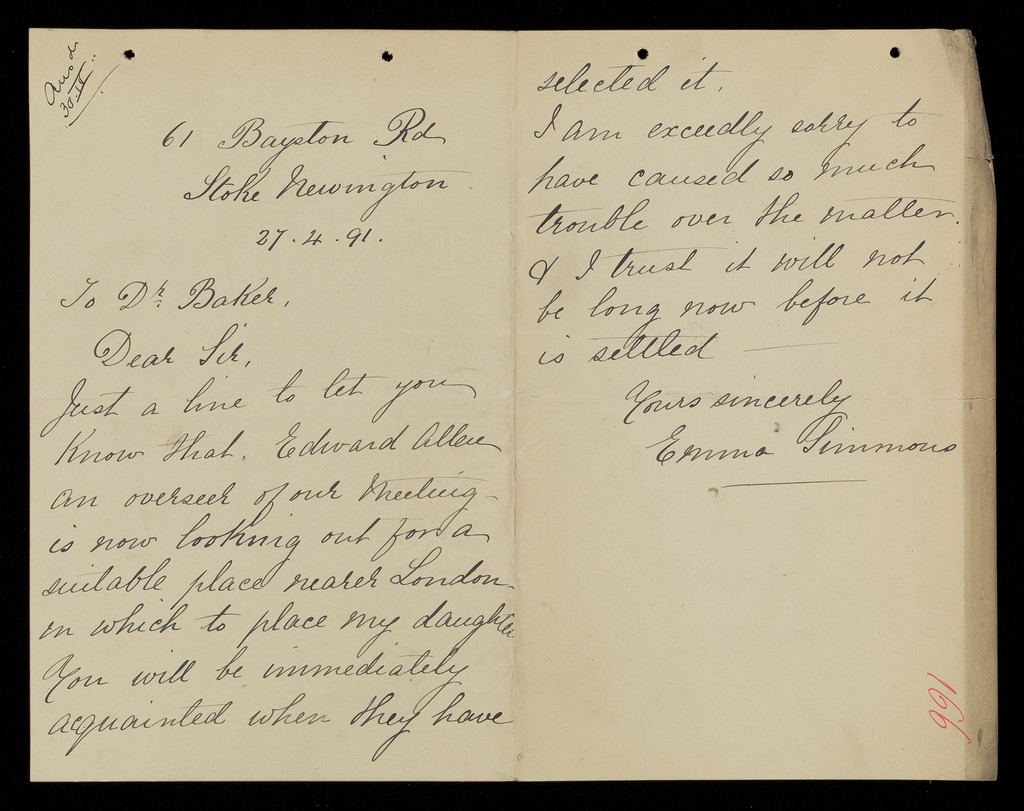 Ansd
30.IV
61 Bayston Rd
Stoke Newington
27.4.91.
To Dr. Baker,
Dear Sir,
Just a line to let you
know that, Edward Allen
an overseer of our Meeting
is now looking out for a
suitable place nearer London
in which to place my daughter
You will be immediately
acquainted when they have
selected it.
I am exceedly sorry to
have caused so much
trouble over the matter.
& I trust it will not
be long now before it
is settled —
Yours sincerely
Emma Simmons
166